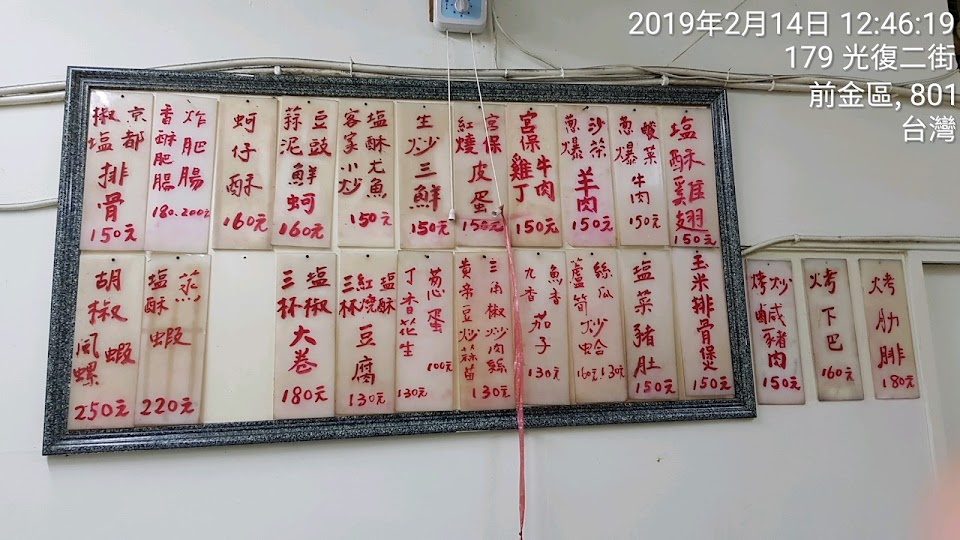 2019年2月14日 12:46:19
179 光復二街
前金區, 801
台灣
京都 椒塩 排骨 150元
炸肥腸 香酥肥腸 180.200元
蚵仔酥 160元
豆豉 蒜泥 鮮蚵 160元
塩酥 客家小炒 尤魚 150元
生炒三鮮 150元
宮保 紅燒 皮蛋 150元
宮保 牛肉 雞丁 150元
沙茶 蔥爆 羊肉 150元
蔥爆 菜 牛肉 150元
塩酥雞翅 150元
胡椒 鳳螺 蝦 250元
蒸 塩酥 蝦 220元
塩椒 三杯 大卷 180元
塩酥 紅燒 三杯 豆腐 130元
蔥蛋 100元 丁香花生 130元
三角椒炒肉絲 黃帝豆炒 130元
魚香 九香 茄子 130元
絲瓜 蘆筍 炒蛤 160元 130元
塩菜豬肚 150元
玉米排骨煲 150元
炒 烤 鹹豬肉 150元
烤下巴 160元
烤肋排 180元